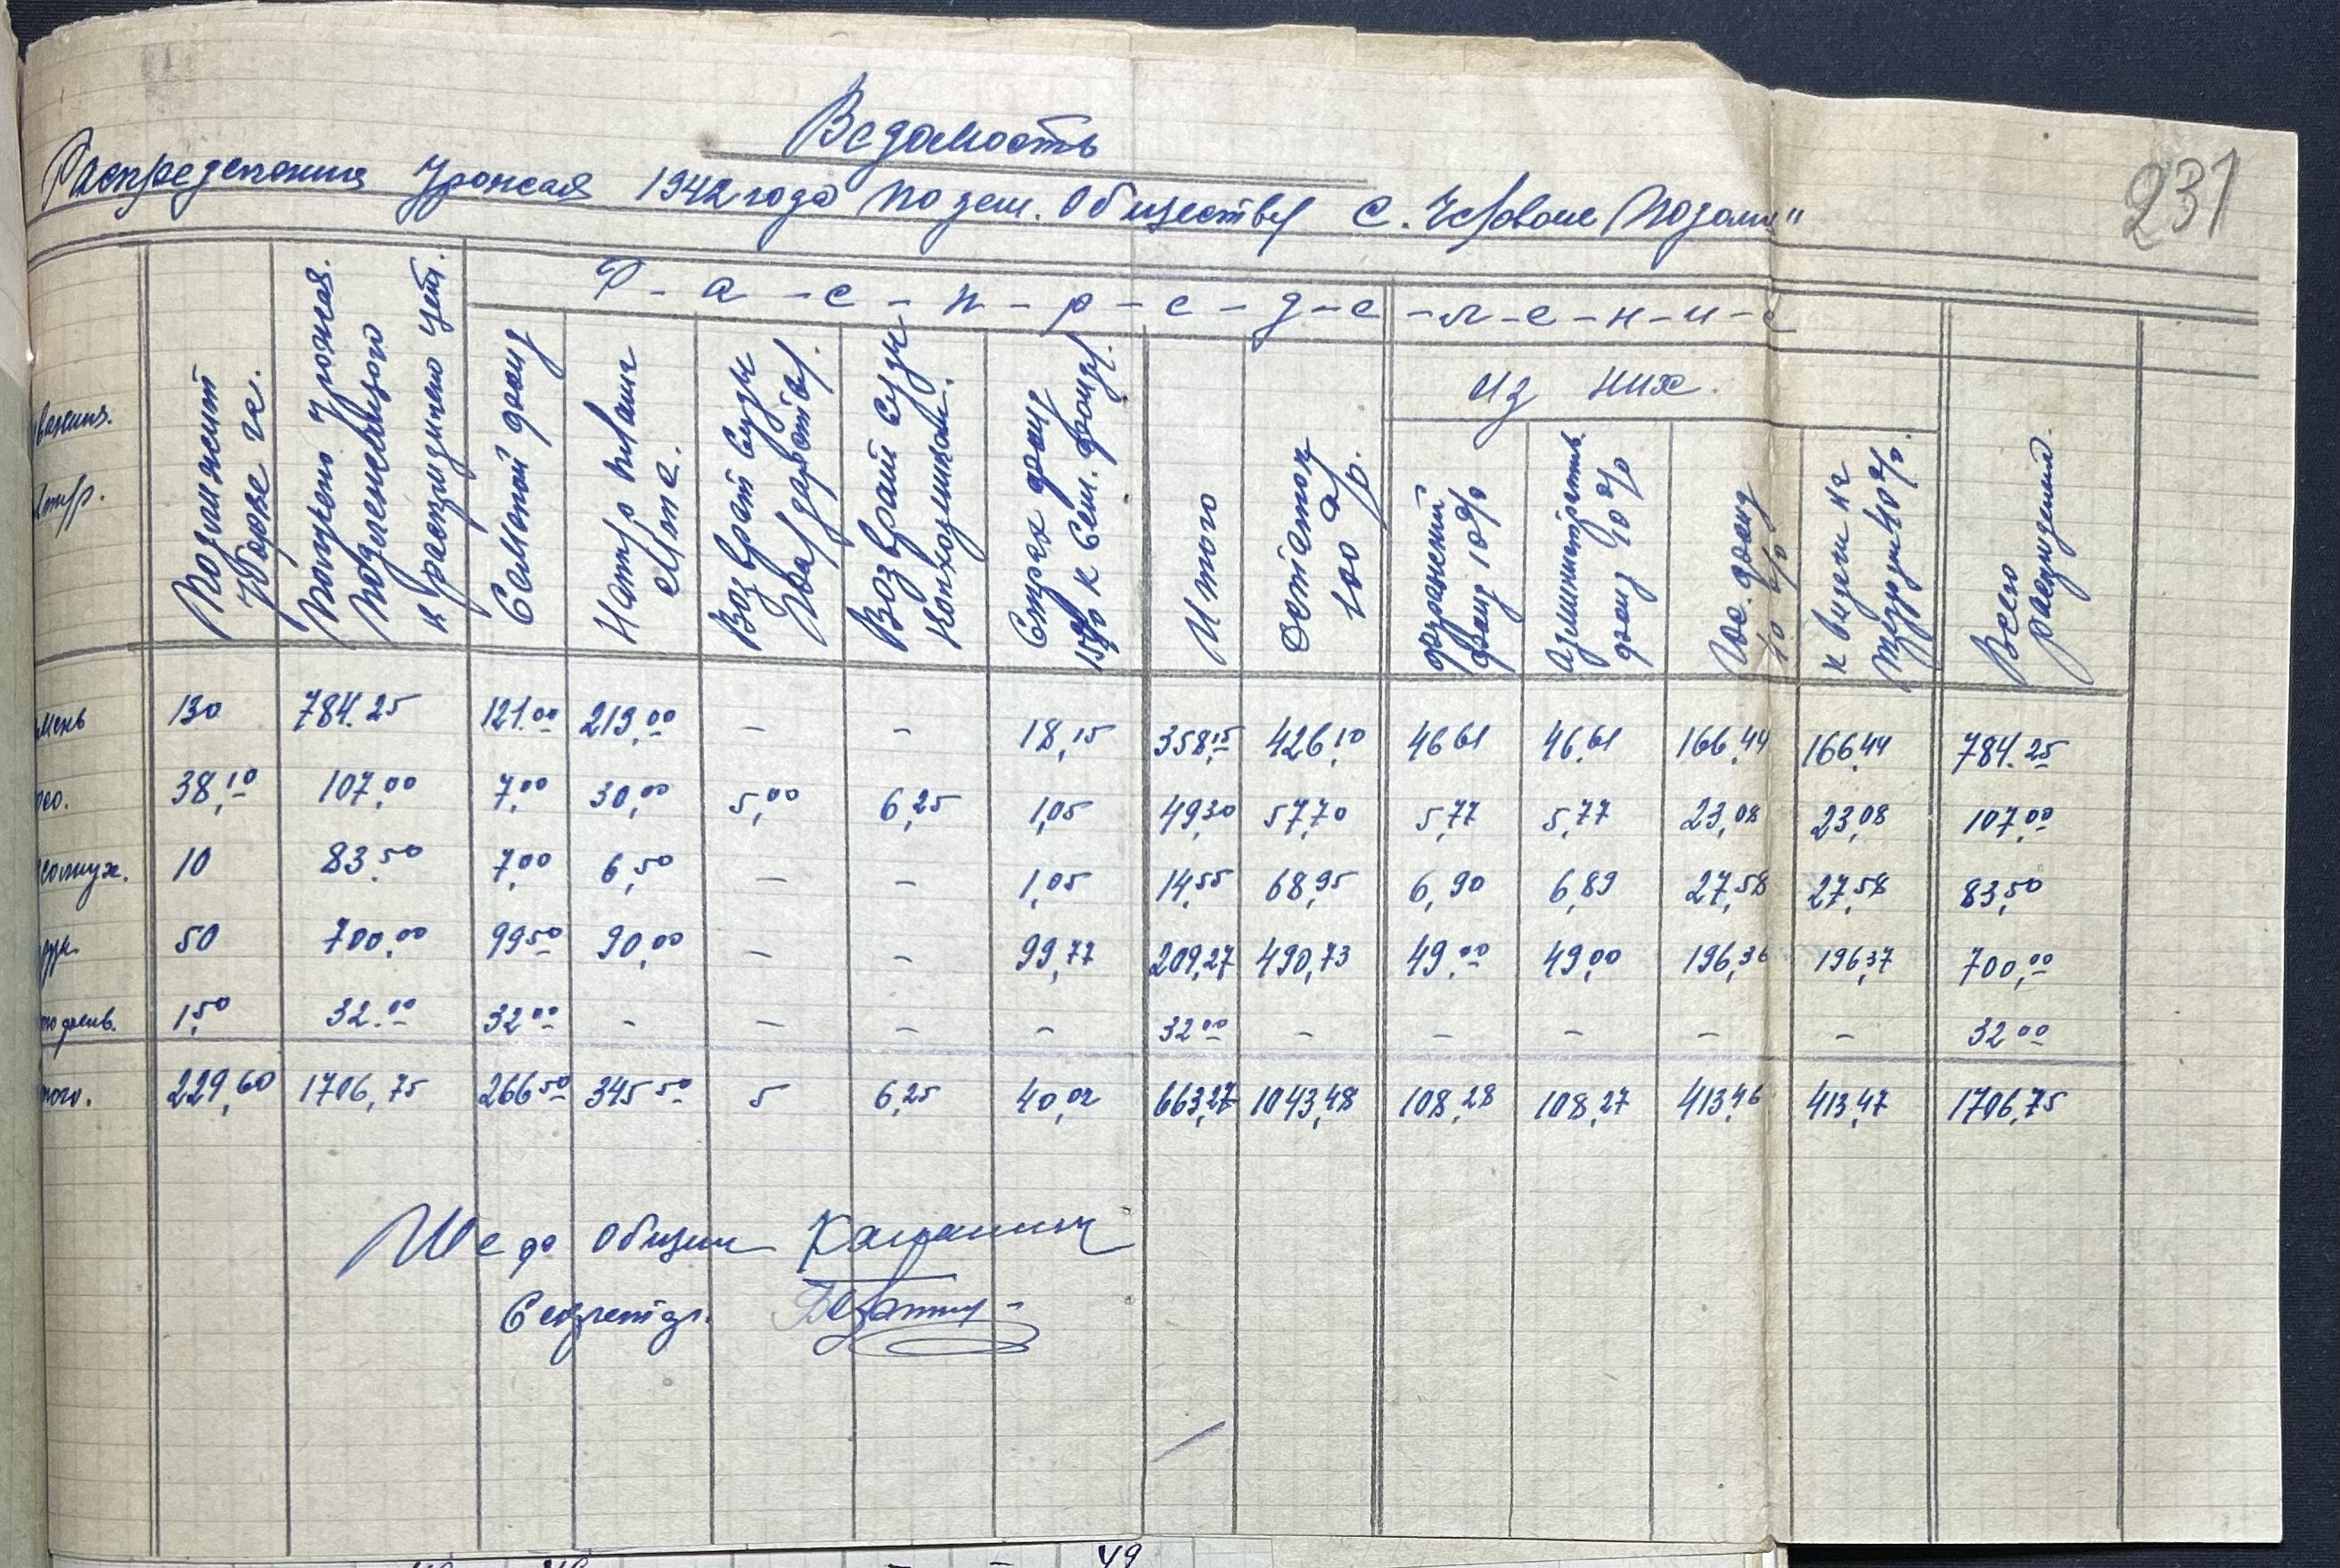 231
Ведомость
Распределения Урожая 1942 года по зем. Обществу с. Червоне
Подлежит уборке га.
Получено Урожая. подлежащего к распределению цент.
Р-а-с-п-р-е-д-е-л-е-н-и-е
Семенной фонд
Натур повинность
Возврат ссуды Государству.
Возврат ссуды
Страх фонд 15% к Сем. фонду.
Итого
Остаток 100%.
из них.
фонд 10%
Административ. фонд 10%
Гос. фонд 40%
к выдаче на трудодни 40%.
Всего
мень 130 784.25 121.00 219,00 – – 18,15 358,15 426,10 46 61 46.61 166,44 166,44 784.25
38,10 107,00 7,00 30,00 5,00 6,25 1,05 49,30 57,70 5,77 5,77 23,08 23,08 107,00
10 83.50 7,00 6,50 – – 1,05 14,55 68,95 6,90 6,89 27,58 27,58 83,50
50 700,00 99 50 90,00 – – 99,77 209,27 490,73 49.00 49,00 196,36 196,37 700,00
1,50 32.00 32 00 – – – – 32 00 – – – – – 32 00
того. 229,60 1706,75 266 50 345 50 5 6,25 40,02 663,27 1043,48 108,28 108,27 413,46 413,47 1706,75
Общин
Секретарь.
49